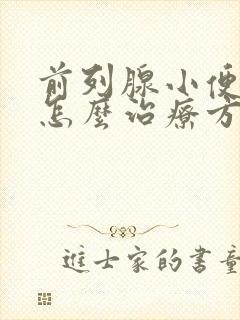 前列腺小便
怎麼治療方
進士家的書童